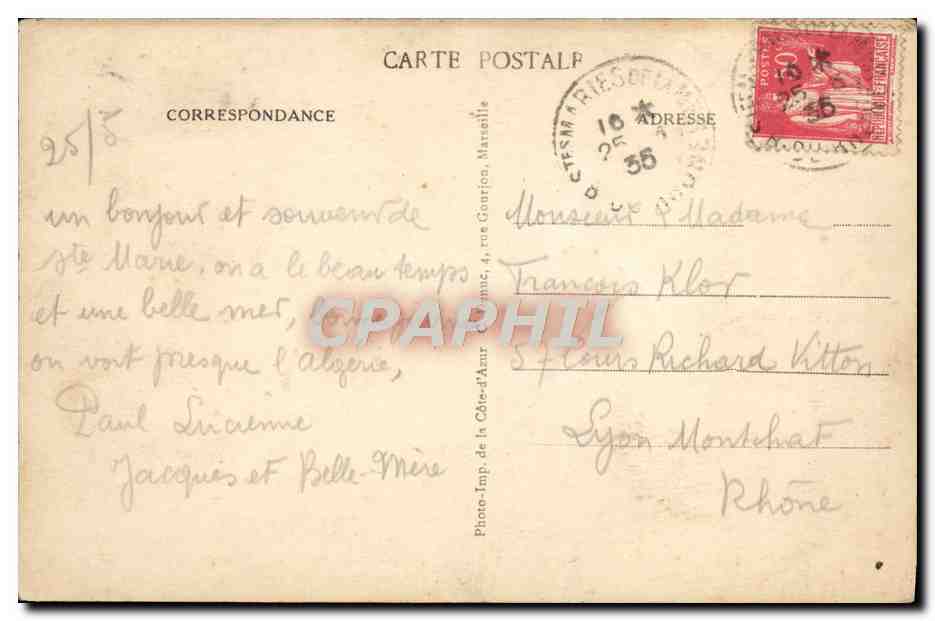 CARTE POSTALE
CORRESPONDANCE
25/5
un bonjour et souvenir de
Ste Marie, on a le beau temps
et une belle mer,
on voit presque l'algérie,
Paul Lucienne
Jacques et Belle-Mère
Photo-Imp. de la Côte-d'Azur 4, rue Gourjon, Marseille
STES MARIES DE LA MER
16 *
25
35
POSTES
50
REPUBLIQUE FRANÇAISE
ADRESSE
Monsieur & Madame
François Klor
57 Cours Richard Vitton
Lyon Montchat
Rhône
CPAPHIL